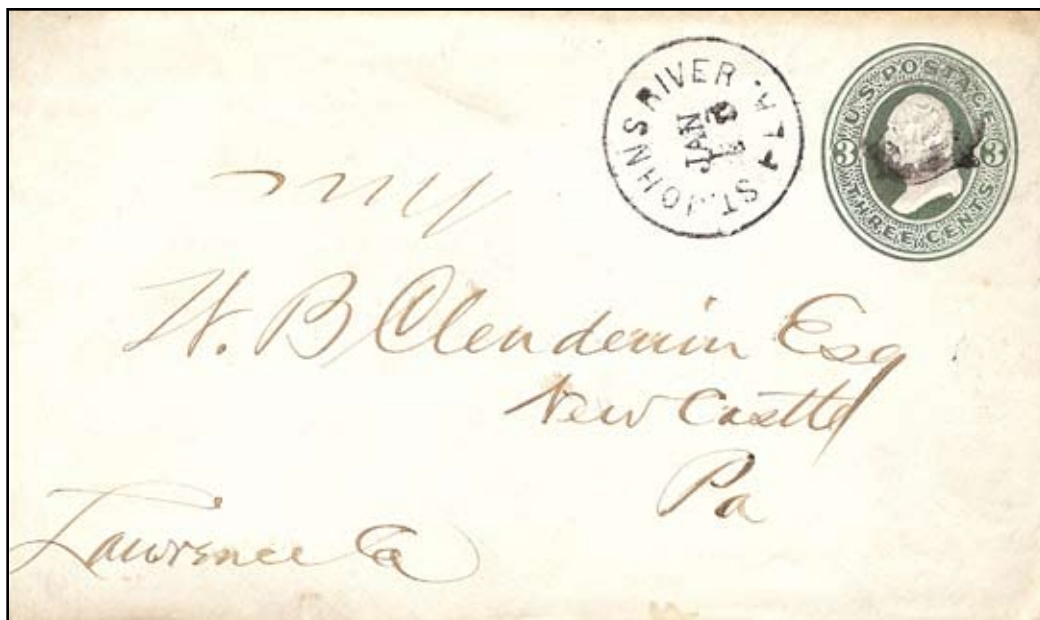 ST. JOHNS RIVER FLA.
JAN
U.S. POSTAGE
3 3
THREE CENTS.
My
W. B Clendenin Esq
New Castle
Pa
Lawrence Co